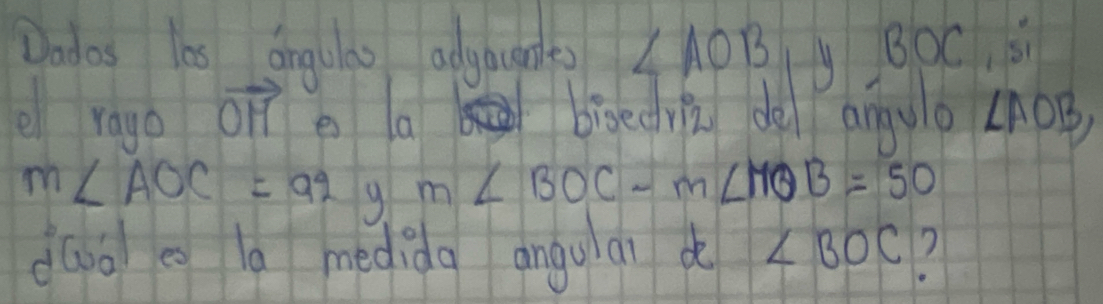 Dados los ángulos adyacentes ∠AOB, y BOC, si
el rayo OM es la bisectriz del ángulo ∠AOB,
m∠AOC = 92 y m∠BOC - m∠MOB = 50
¿Cuál es la medida angular de ∠BOC?